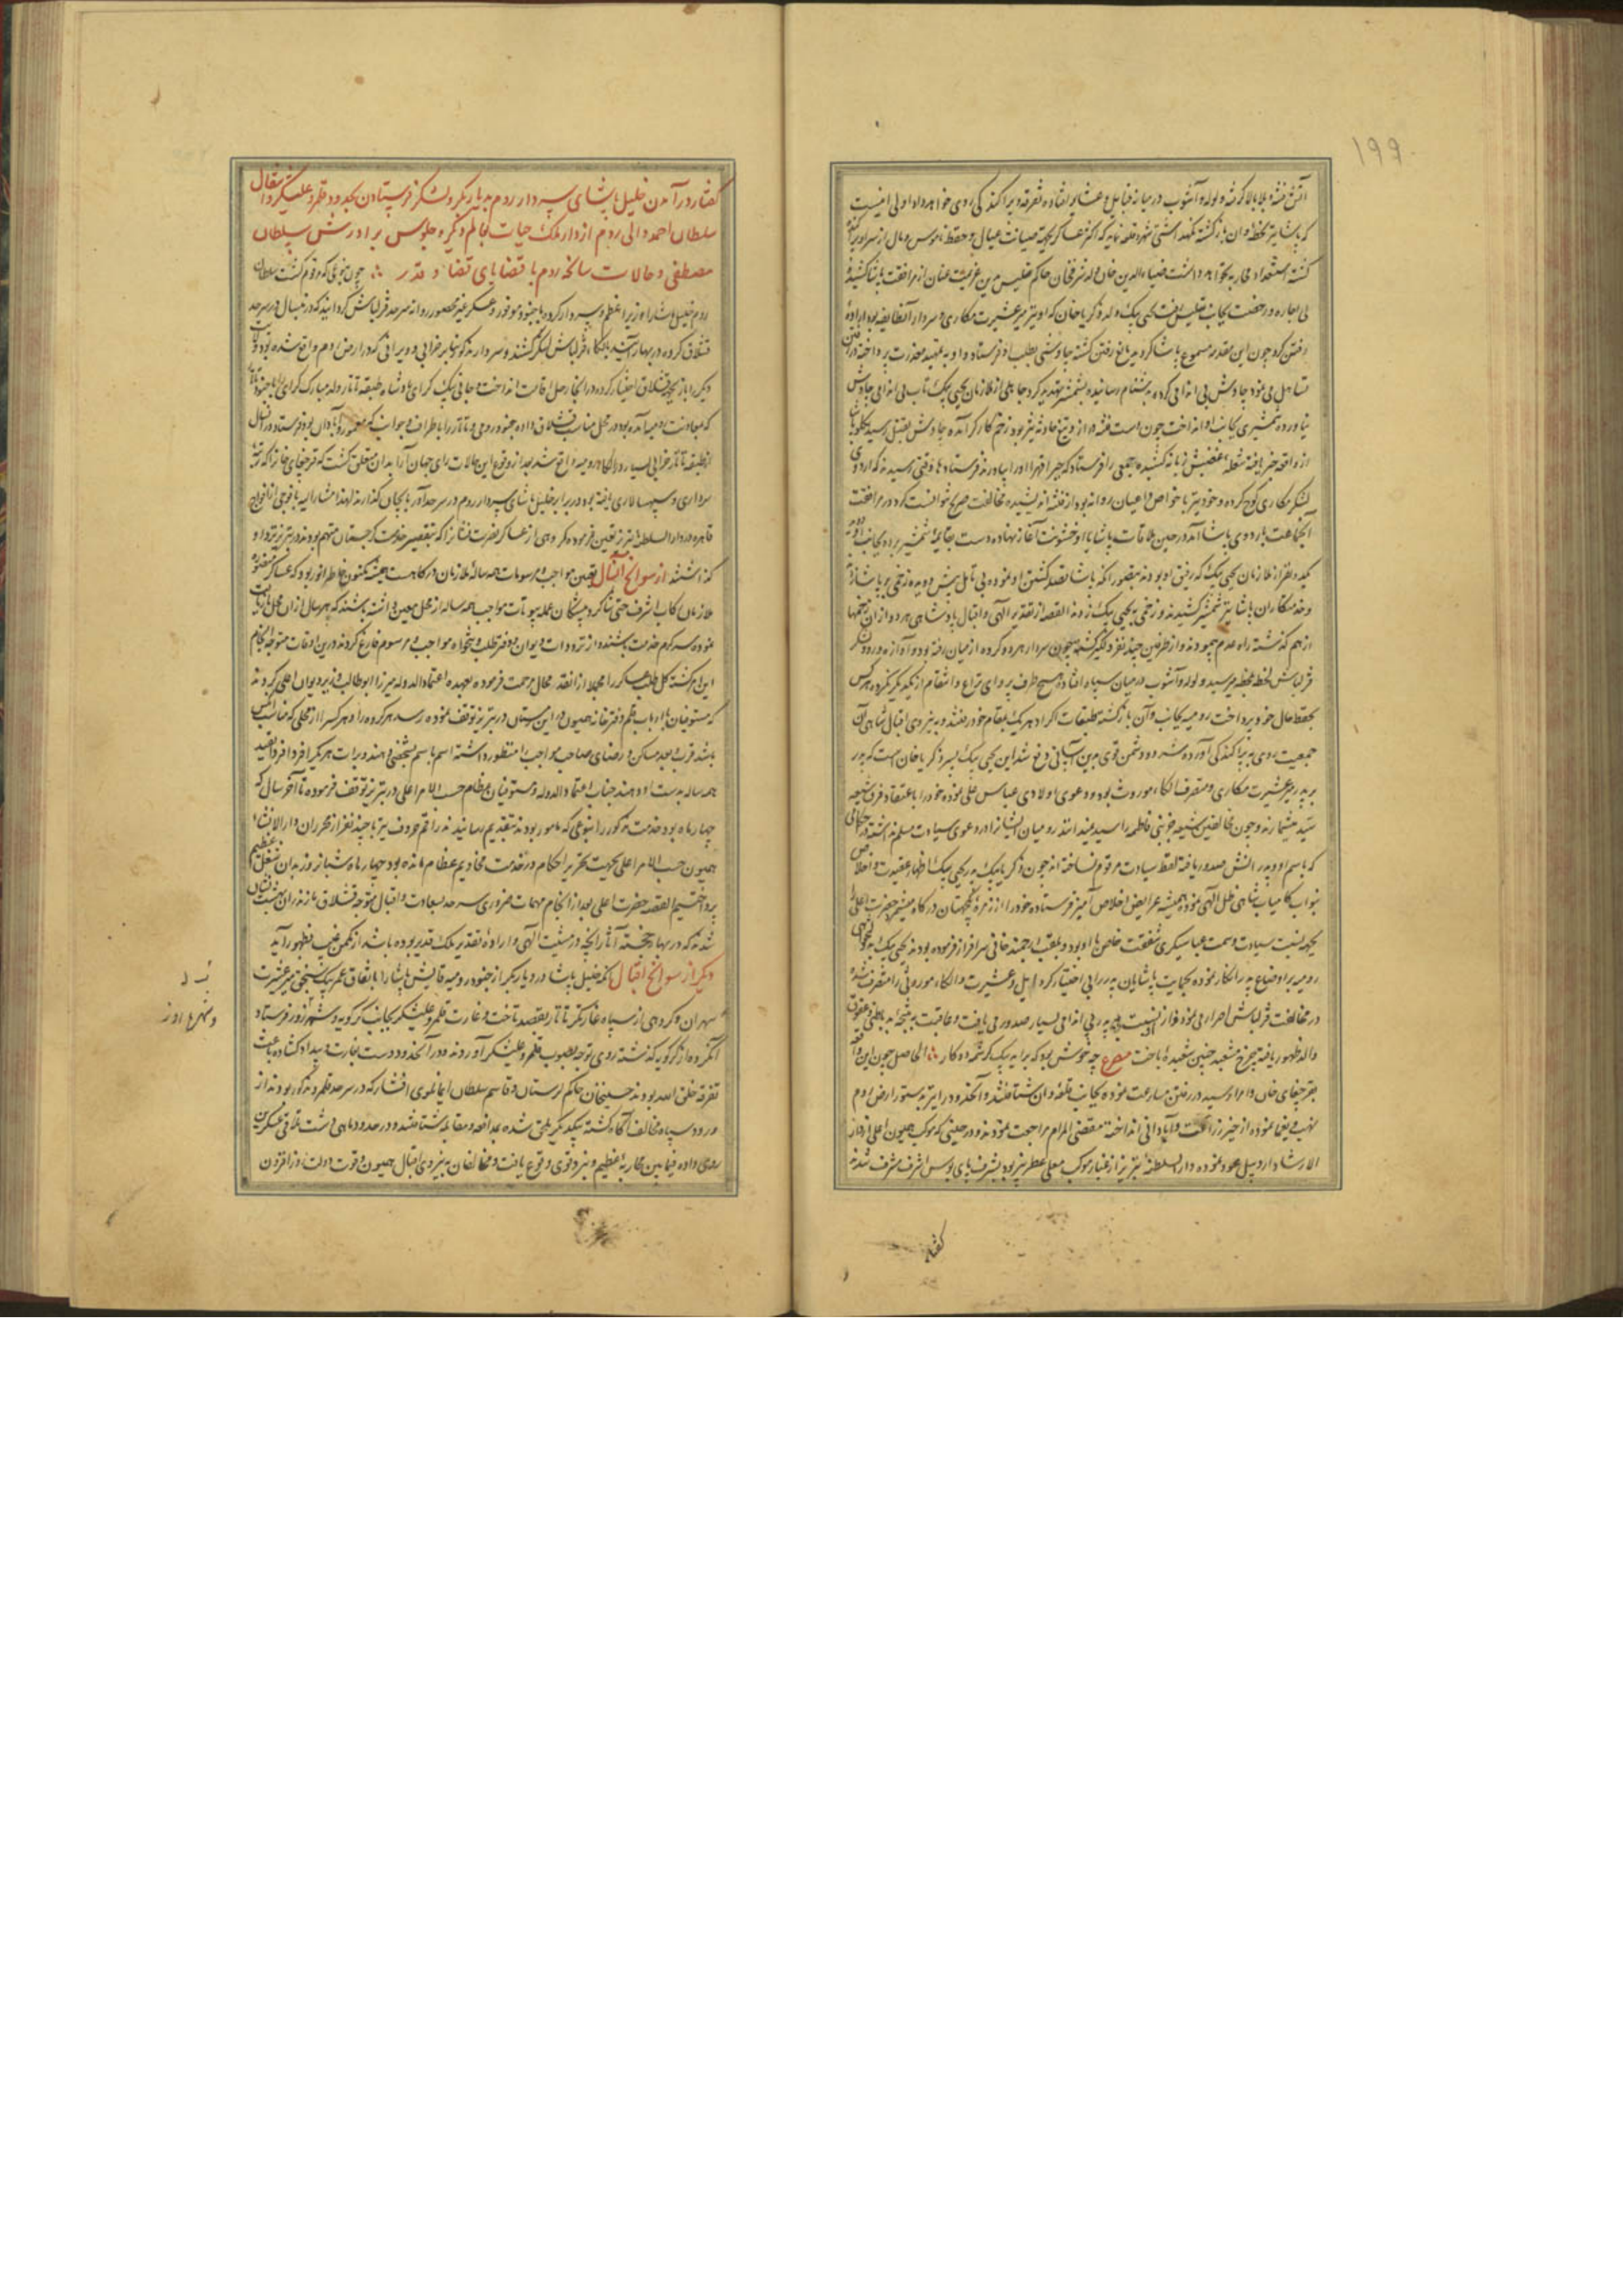 ۱۹۹
آتش فتنه و بلا بالا گرفته ولوله و آشوب در میانه قبایل و عشایر افتاده تفرقه و پراکندگی روی خواهد داد اولی انست
که پاشا نیز بخطه وان بازگشته
گشته استعداد محاربه نخواهد داشت ضیاءالدین خان ولد شرفخان حاکم تفلیس بدین عزیمت عنان از مرافقت پاشا کشیده
بی اجازه و رخصت بجانب تفلیس رفت یحیی بیک ولد ذکریا خان که او نیز میر عشیرت مکاری و سردار آنطایفه بود اراده
رفتن کرد چون این مقدمه مسموع پاشا گردید مانع رفتن گشته چاوشی بطلب او فرستاد و او به تمهید معذرت پرداخته در رفتن
تساهل می نمود چاوش بی اندامی کرده به دشنام رسانیده بشمشیر تهدید کرد جاهلی از ملازمان یحیی بیک تاب بی اندامی چاوش
نیاورده شمشیری بجانب او انداخت چون است فتنه دراز و تیغ حادثه تیز بود زخم کارگر آمده چاوش بقتل رسید
از واقعه خبر یافته شعله غضبش زبانه کشیده جمعی را فرستاد که جبرا قهرا او را بیاورند فرستادها وقتی رسیدند که اردوی
لشکر مکاری کوچ کرده و خود نیز با خواص و اعیان روانه بود از فتنه اندیشیده مخالفت صریح نتوانست کرد در مرافقت
آنجماعت باردوی پاشا آمد در حین ملاقات پاشا با او خشونت آغاز نهاده دست بقایمه شمشیر برده بجانب او
یکدو نفر از ملازمان یحیی بیک که رفیق او بودند بتصور آنکه پاشا قصد کشتن او نموده بی تامل پیش دویده زخمی بر پاشا زدند
و خدمتکاران پاشا نیز شمشیر کشیدند و زخمی به یحیی بیک زدند القصه از تقدیر الهی و اقبال پادشاهی هر دو از آن زخمها
از هم گذشته راه عدم پیمودند و از طرفین چند نفر دیگر کشته چون سردار هر دو گروه از میان رفته بود و آوازه ورود لشکر
قزلباش لحظه بلحظه میرسید ولوله و آشوب در میان سپاه افتاد هیچ طرف پروای نزاع و انتقام از یکدیگر نکرده هر کس
بحفظ حال خود پرداخت رومیه بجانب وان بازگشته طبقات اکراد هر یک بمقام خود رفتند و به نیروی اقبال شاهی آن
جمعیت روی به پراکندگی آورده شر دو دشمن قوی بدین آسانی دفع شد این یحیی بیک پسر ذکریا خان است که پدر
بر پدر میر عشیرت مکاری و متصرف الکاء موروث بود و دعوی اولادی عباس علی نموده خود را با عتقاد فرق شیعه
سید میشمارند و چون مخالفین شیعه غیر بنی فاطمه را سید نمیدانند رومیان ایشان را در دعوی سیادت مسلم نداشته
که باسم او و پدرانش صدور یافته لفظ سیادت مرقوم نساخته اند چون ذکریا بیک پدر یحیی بیک اظهار عقیدت و اخلاص
بنواب کامیاب شاهی ظل الهی نموده همیشه عرایض اخلاص آمیز فرستاده خود را از زمره یکجهتان درگاه میشمرد حضرت اعلی
بجهه نسبت سیادت و سمت عباسیگری شفقت خاص با او بود و بلقب ارجمند خانی سرافراز فرموده بودند یحیی بیک
رومیه بر اوضاع پدر انکار نموده بحمایت پاشایان پدر را بی اختیار کرد و ایل و عشیرت و الکاء موروثی را متصرف شد
در مخالفت قزلباش اصرار می نمود و از او نسبت به پدر بی اندامی بسیار صدور می یافت و عاقبت
والد ظهور یافته چرخ مشعبد چنین شعبدهٔ باخت مصرع چه خوش بود که براید بیک کرشمه دو کار ∴ الحاصل چون این واقعه
بقرچغای خان و امرا رسید در رفتن مسارعت نموده بجانب قلعه وان شتافتند و آنحدود را نیز بدستور ارض روم
نهب و یغما نموده از حیز زراعت و آبادانی انداخته مقضی المرام مراجعت نمودند و در حینی که موکب همیون اعلی از دار
الارشاد اردبیل عود نموده دارالسلطنه تبریز از غبار موکب معلی عطربیز بود بشرف پای بوس اشرف مشرف شدند
گفتار
گفتار در آمدن خلیل پاشای سپه دار روم بدیاربکر و لشکر فرستادن بحدود قلمرو علیشکر و انتقال
سلطان احمد والی روم از دار ملک حیات بعالم دیگر و جلوس برادرش سلطان
مصطفی و حالات سانحه روم با قتضای قضا و قدر ∴ چون بنوعی که مرقوم گشت سلطان
روم خلیل پاشا را وزیر اعظم و سردار کرده با جنود موفور و عسکر غیر محصور روانه سرحد قزلباش گردانید که در نیسال در سرحد
قشلاق کرده در بهار آینده بالکاء قزلباش لشکر کشند و سردار مذکور بنابر خرابی و ویرانی که در ارض روم واقع شده بود
دیاربکر را بجهت قشلاق اختیار کرده در آنجا رحل اقامت انداخت و جانی بیک کرای پادشاه طبقه تاتار ولد مبارک کرای را با جنود تاتار
که بمعاونت رومیه آمده بود در محل مناسب قشلاق داده جنود رومی و تاتار را باطراف و جوانب که معمور و آبادان بود فرستاد
از طبقه تاتار خرابی بسیار در الکاء رومیه واقع شد بعد از وقوع این حالات رای جهان آرا بدان متعلق گشت که قرچغای خان را که رتبه
سرداری و سپهسالاری یافته بود در برابر خلیل پاشای سردار روم در سرحد آذربایجان گذارند لهذا مشارالیه با فوجی از افواج
قاهره در دارالسلطنه تبریز تعیین فرموده گروهی از عساکر نصرت نشان را که بتقصیر خدمت گرجستان متهم بودند در تبریز نزد او
گذاشتند از سوانح اقبال تعیین مواجب و مرسومات همه ساله ملازمان درگاهست همیشه مکنون خاطر انور بود که عساکر منصوره
ملازمان رکاب اشرف حتی شاگرد پیشگان جمله بیوتات مواجب همه ساله از محل معین داشته باشند که هر سال از آن محل
نموده سرگرم خدمت باشند و از ترددات دیوان و دفتر طلب و تنخواه مواجب و مرسوم فارغ گردند درین اوقات متوجه انجام
این امر گشته کل طلب عساکر را مجملا از انقد محال مرحمت فرموده بعهده اعتمادالدوله میرزا ابوطالب وزیر دیوان اعلی کردند
که مستوفیان و ارباب قلم دفترخانه همیون در این مستان در تبریز توقف نموده رسد هر گروه را و هر کس را از محلی که مناسب
باشد قرب و بعد مسکن و رضای صاحب مواجب را منظور داشته اسم باسم مشخص نمایند و برات هر یک را فرد افرد
همه ساله بدست او دهند جناب اعتمادالدوله و مستوفیان عظام حسب الامر اعلی در تبریز توقف فرموده تا آخر سال که
چهار ماه بود خدمت مذکور را بنوعی که مامور بودند بتقدیم رسانیدند راقم حروف نیز با چند نفر از محرران دارالانشاء
همیون حسب الامر اعلی بجهت تحریر احکام در خدمت مخادیم عظام مانده بود چهار ماه شبانروز بدان شغل عظیم
پرداختیم القصه حضرت اعلی بعد از انجام مهمات ضروری سرحد بسعادت و اقبال متوجه قشلاق مازندران بهشت نشان
شدند که در بهار خجسته آثار آنچه در مشیت الهی و ارادهٔ تقدیر ملک قدیر بوده باشد از مکمن غیب بظهور آید
دیگر از سوانح اقبال آنکه خلیل پاشا در دیاربکر از جنود رومیه قالیش پاشا را باتفاق عمر بیک سنجقی میر عشیرت
سهران و گروهی از سپاه غارتگر تاتار بقصد تاخت و غارت قلمرو علیشکر بجانب کرکویه و شهرزور فرستاد
آنگروه از کرکویه گذشته روی توجه بصوب قلمرو علیشکر آوردند و در آنحدود دست بغارت و بیداد گشاده باعث
تفرقه خلق الله بودند حسینخان حاکم لرستان و قاسم سلطان ایمانلوی افشار که در سرحد قلمرو مذکور بودند از
ورود سپاه مخالف آگاه گشته بیکدیگر ملحق شده بمدافعه و مقابله شتافتند و در حدود ماهی دشت تلاقی عسکرین
روی داده فیمابین محاربه عظیم و نبرد قوی وقوع یافت و مخالفان به نیروی اقبال همیون و قوت دولت روز افزون